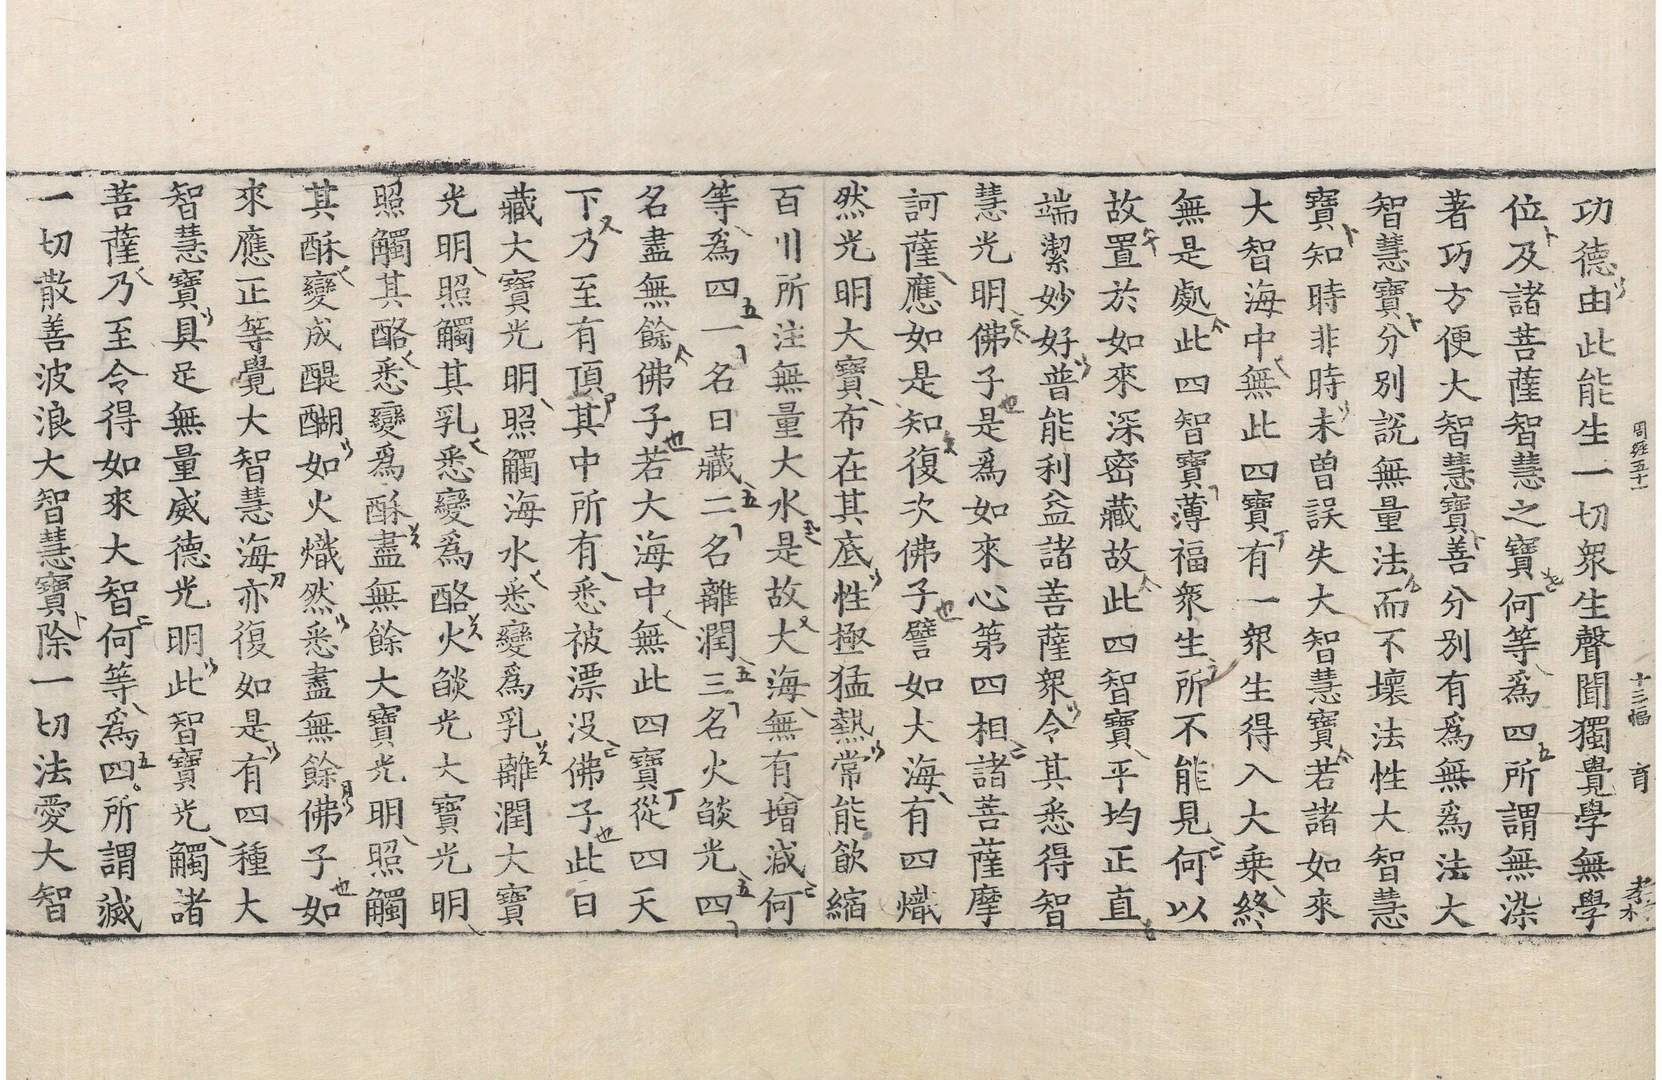 周經五十一 十三幅 育 孝木
功德由此能生一切衆生聲聞獨覺學無學
位及諸菩薩智慧之寶何等爲四所謂無染
著巧方便大智慧寶善分別有爲無爲法大
智慧寶分別說無量法而不壞法性大智慧
寶知時非時未曽誤失大智慧寶若諸如來
大智海中無此四寶有一衆生得入大乘終
無是處此四智寶薄福衆生所不能見何以
故置於如來深密藏故此四智寶平均正直
端潔妙好普能利益諸菩薩衆令其悉得智
慧光明佛子是爲如來心第四相諸菩薩摩
訶薩應如是知復次佛子譬如大海有四熾
然光明大寶布在其底性極猛熱常能飲縮
百川所注無量大水是故大海無有增減何
等爲四一名日藏二名離潤三名火燄光四
名盡無餘佛子若大海中無此四寶從四天
下乃至有頂其中所有悉被漂没佛子此日
藏大寶光明照觸海水悉變爲乳離潤大寶
光明照觸其乳悉變爲酪火燄光大寶光明
照觸其酪悉變爲酥盡無餘大寶光明照觸
其酥變成醍醐如火熾然悉盡無餘佛子如
來應正等覺大智慧海亦復如是有四種大
智慧寶具足無量威德光明此智寶光觸諸
菩薩乃至令得如來大智何等爲四所謂滅
一切散善波浪大智慧寶除一切法愛大智